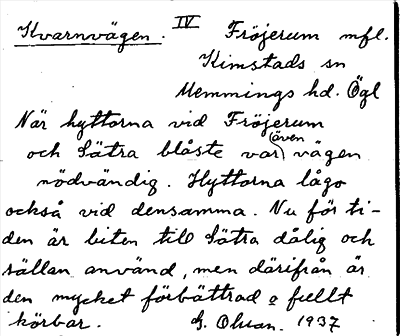 Kvarnvägen. IV Fröjerum mfl.
Kimstads sn
Memmings hd. Ögl
När hyttorna vid Fröjerum
och Sätra blåste var (även) vägen
nödvändig. Hyttorna lågo
också vid densamma. Nu för ti-
den är biten till Sätra dålig och
sällan använd, men därifrån är
den mycket förbättrad o fullt
körbar. G. Olsson. 1937